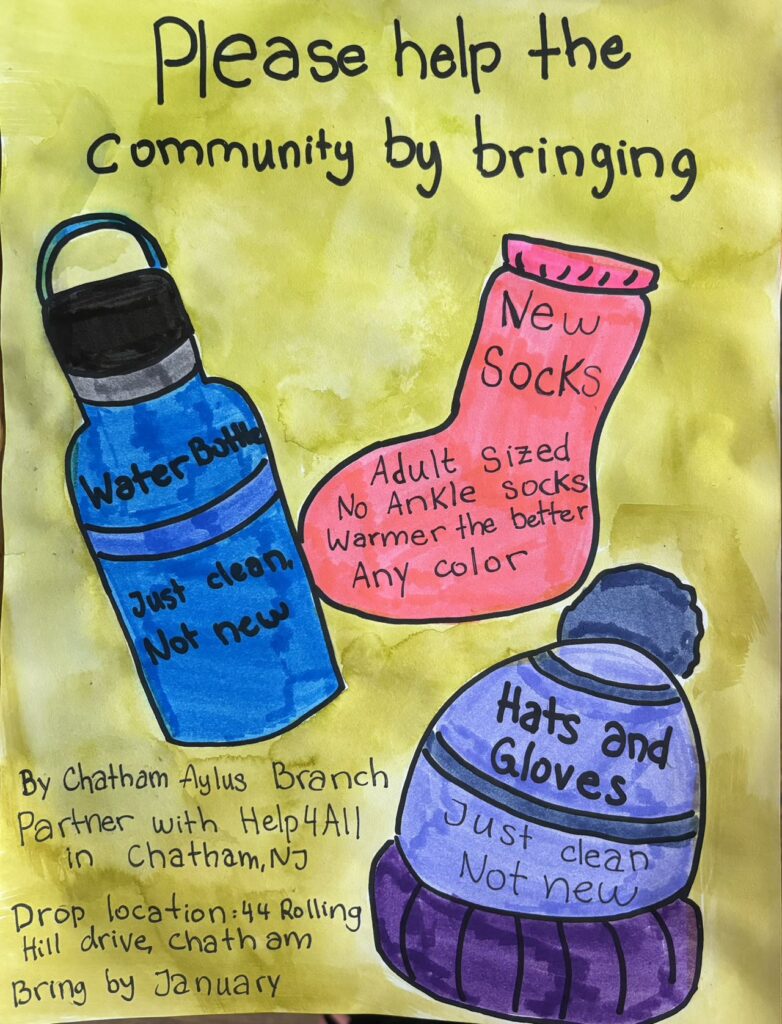 Please help the
community by bringing
Water Bottle
Just clean,
Not new
New
Socks
Adult Sized
No Ankle socks
Warmer the better
Any color
Hats and
Gloves
Just clean
Not new
By Chatham Aylus Branch
Partner with Help4All
in Chatham, NJ
Drop location: 44 Rolling
Hill drive, chatham
Bring by January